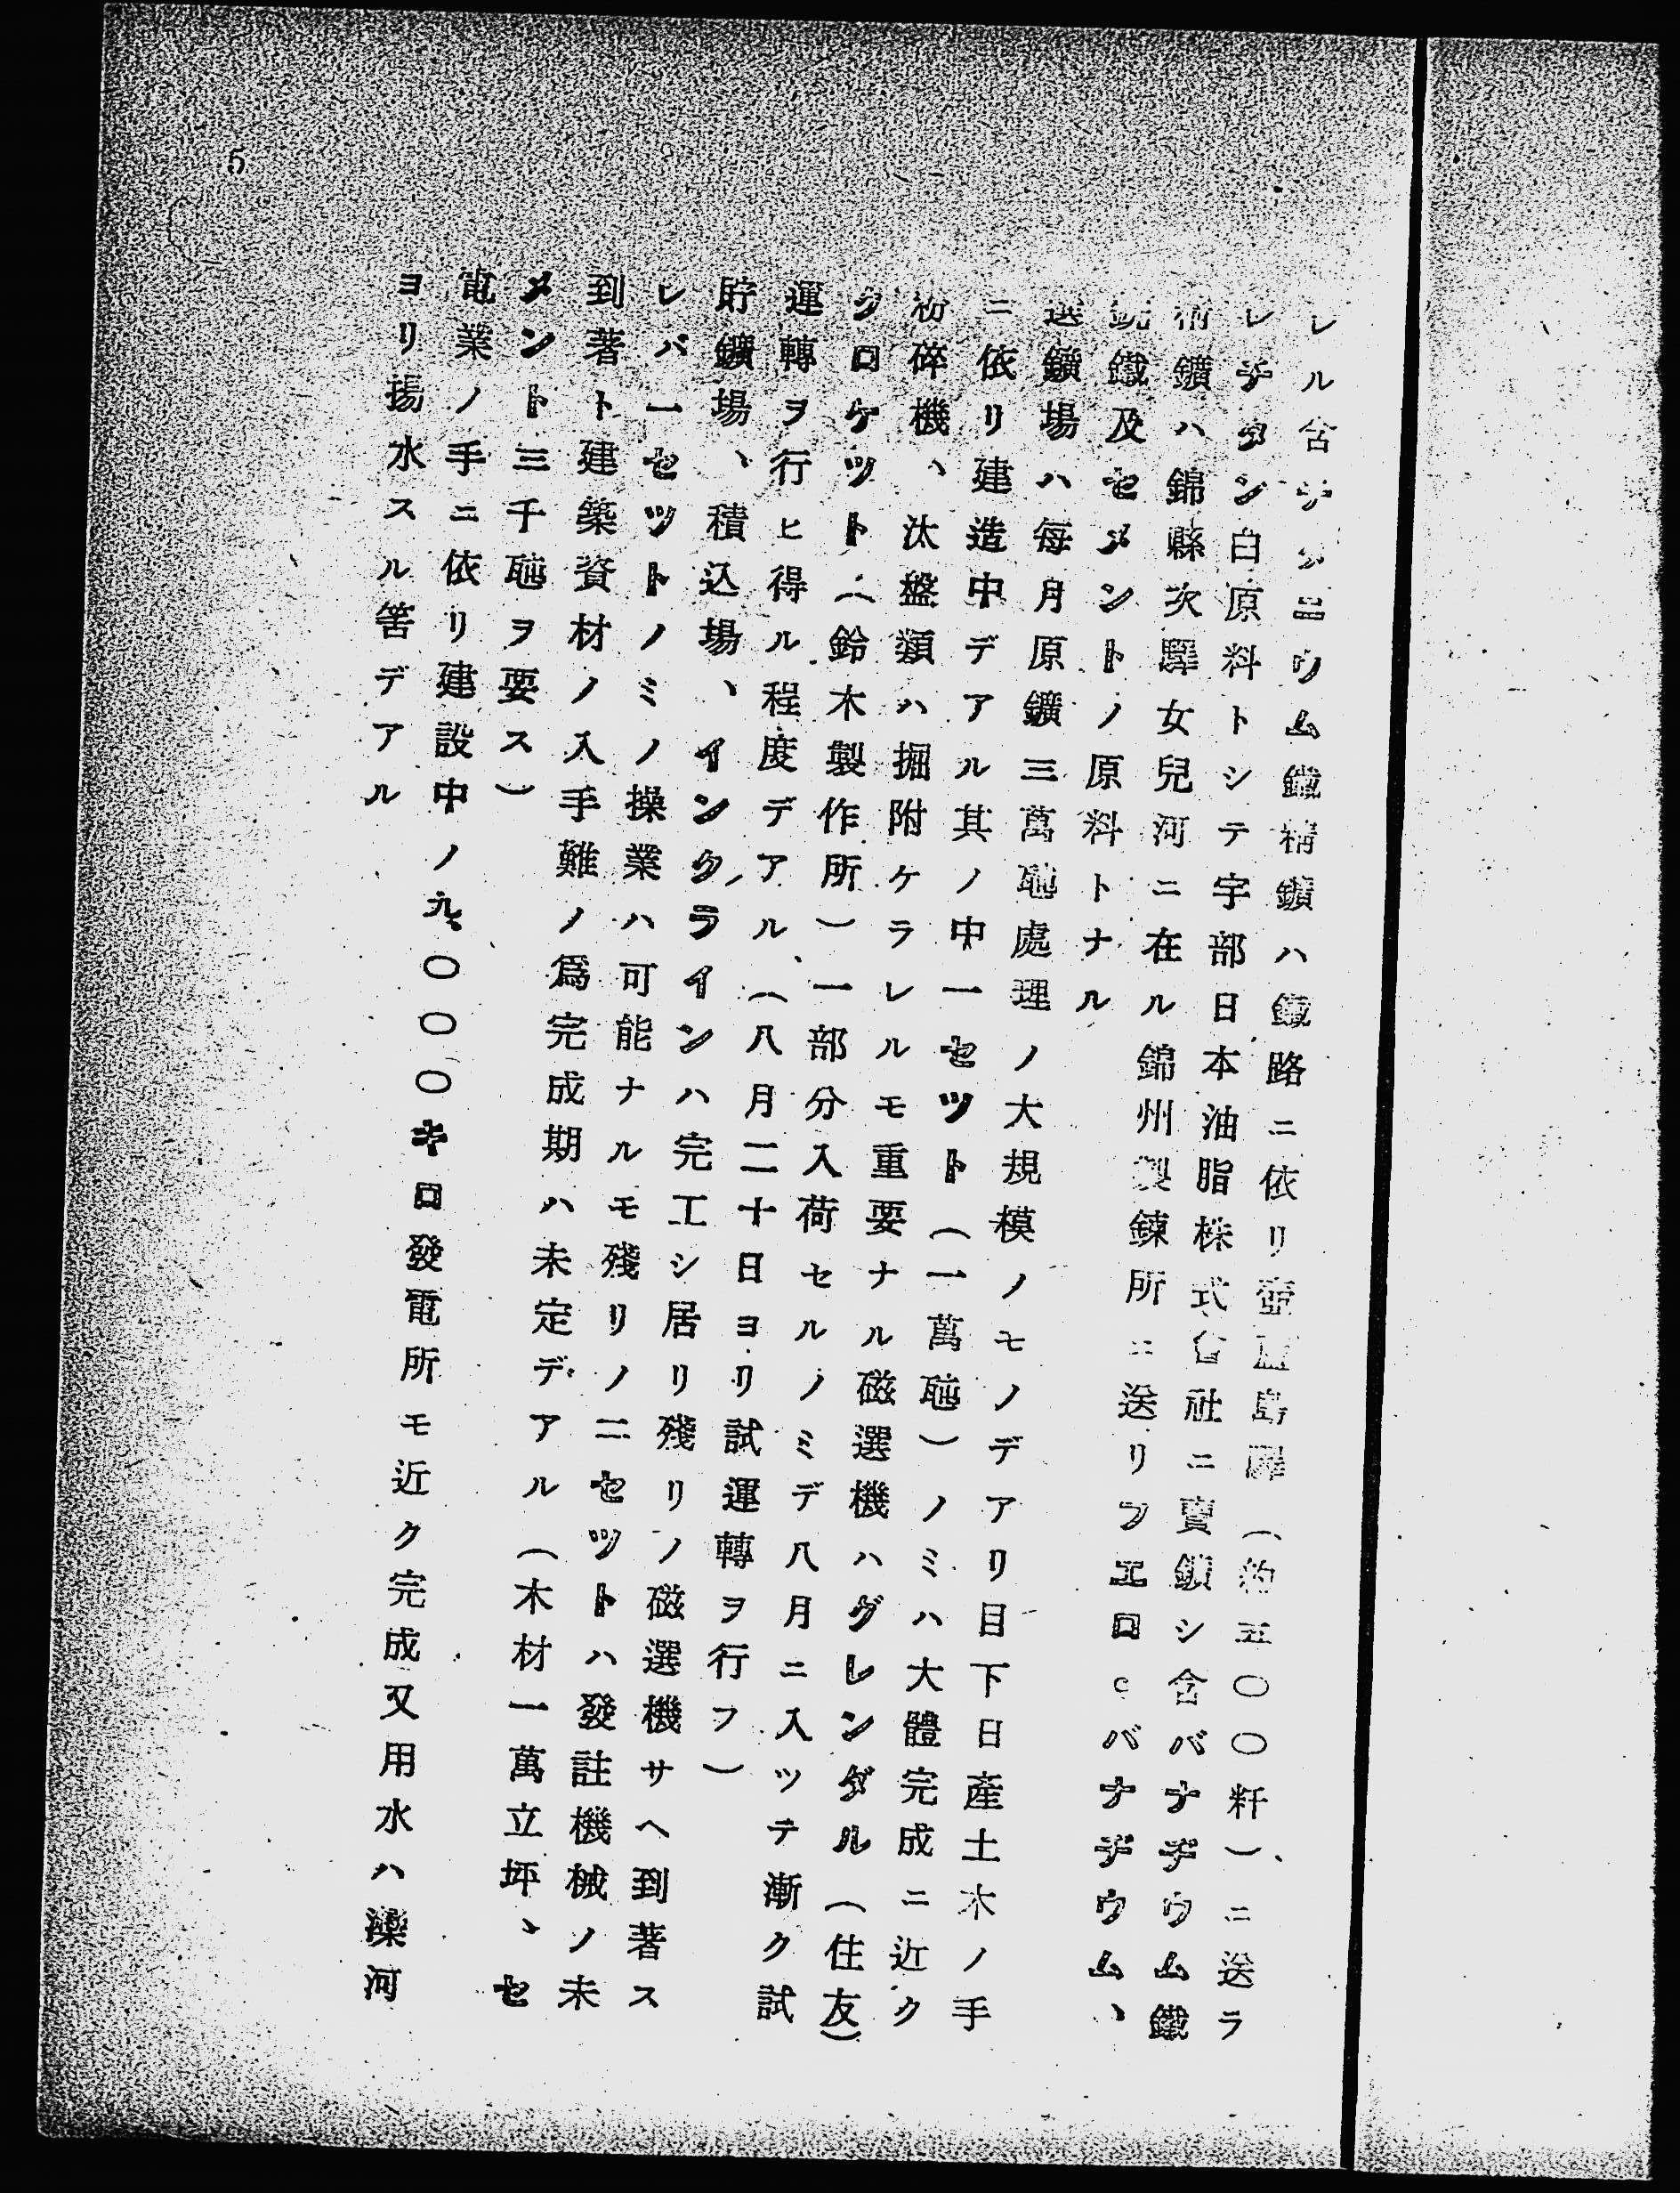 レル含ヂルコニウム鐵精鑛ハ鐵路ニ依リ壺蘆島驛(約五〇〇粁)ニ送ラ
レチタン白原料トシテ宇部日本油脂株式會社ニ賣鑛シ含バナヂウム鐵
精鑛ハ錦縣次驛女兒河ニ在ル錦州製鍊所ニ送リフエロcバナヂウム、
銑鐵及セメントノ原料トナル
選鑛場ハ每月原鑛三萬瓲處理ノ大規模ノモノデアリ目下日產土木ノ手
ニ依リ建造中デアル其ノ中一セツト(一萬瓲)ノミハ大體完成ニ近ク
粉碎機、汰盤類ハ掘附ケラレルモ重要ナル磁選機ハグレンダル(住友)
クロケツト(鈴木製作所)一部分入荷セルノミデ八月ニ入ツテ漸ク試
運轉ヲ行ヒ得ル程度デアル、(八月二十日ヨリ試運轉ヲ行フ)
貯鑛場、積込場、インクラインハ完工シ居リ殘リノ磁選機サヘ到著ス
レバ一セツトノミノ操業ハ可能ナルモ殘リノ二セツトハ發註機械ノ未
到著ト建築資材ノ入手難ノ爲完成期ハ未定デアル(木材一萬立坪、セ
メント三千瓲ヲ要ス)
電業ノ手ニ依リ建設中ノ九、〇〇〇キロ發電所モ近ク完成又用水ハ灤河
ヨリ揚水スル筈デアル
5